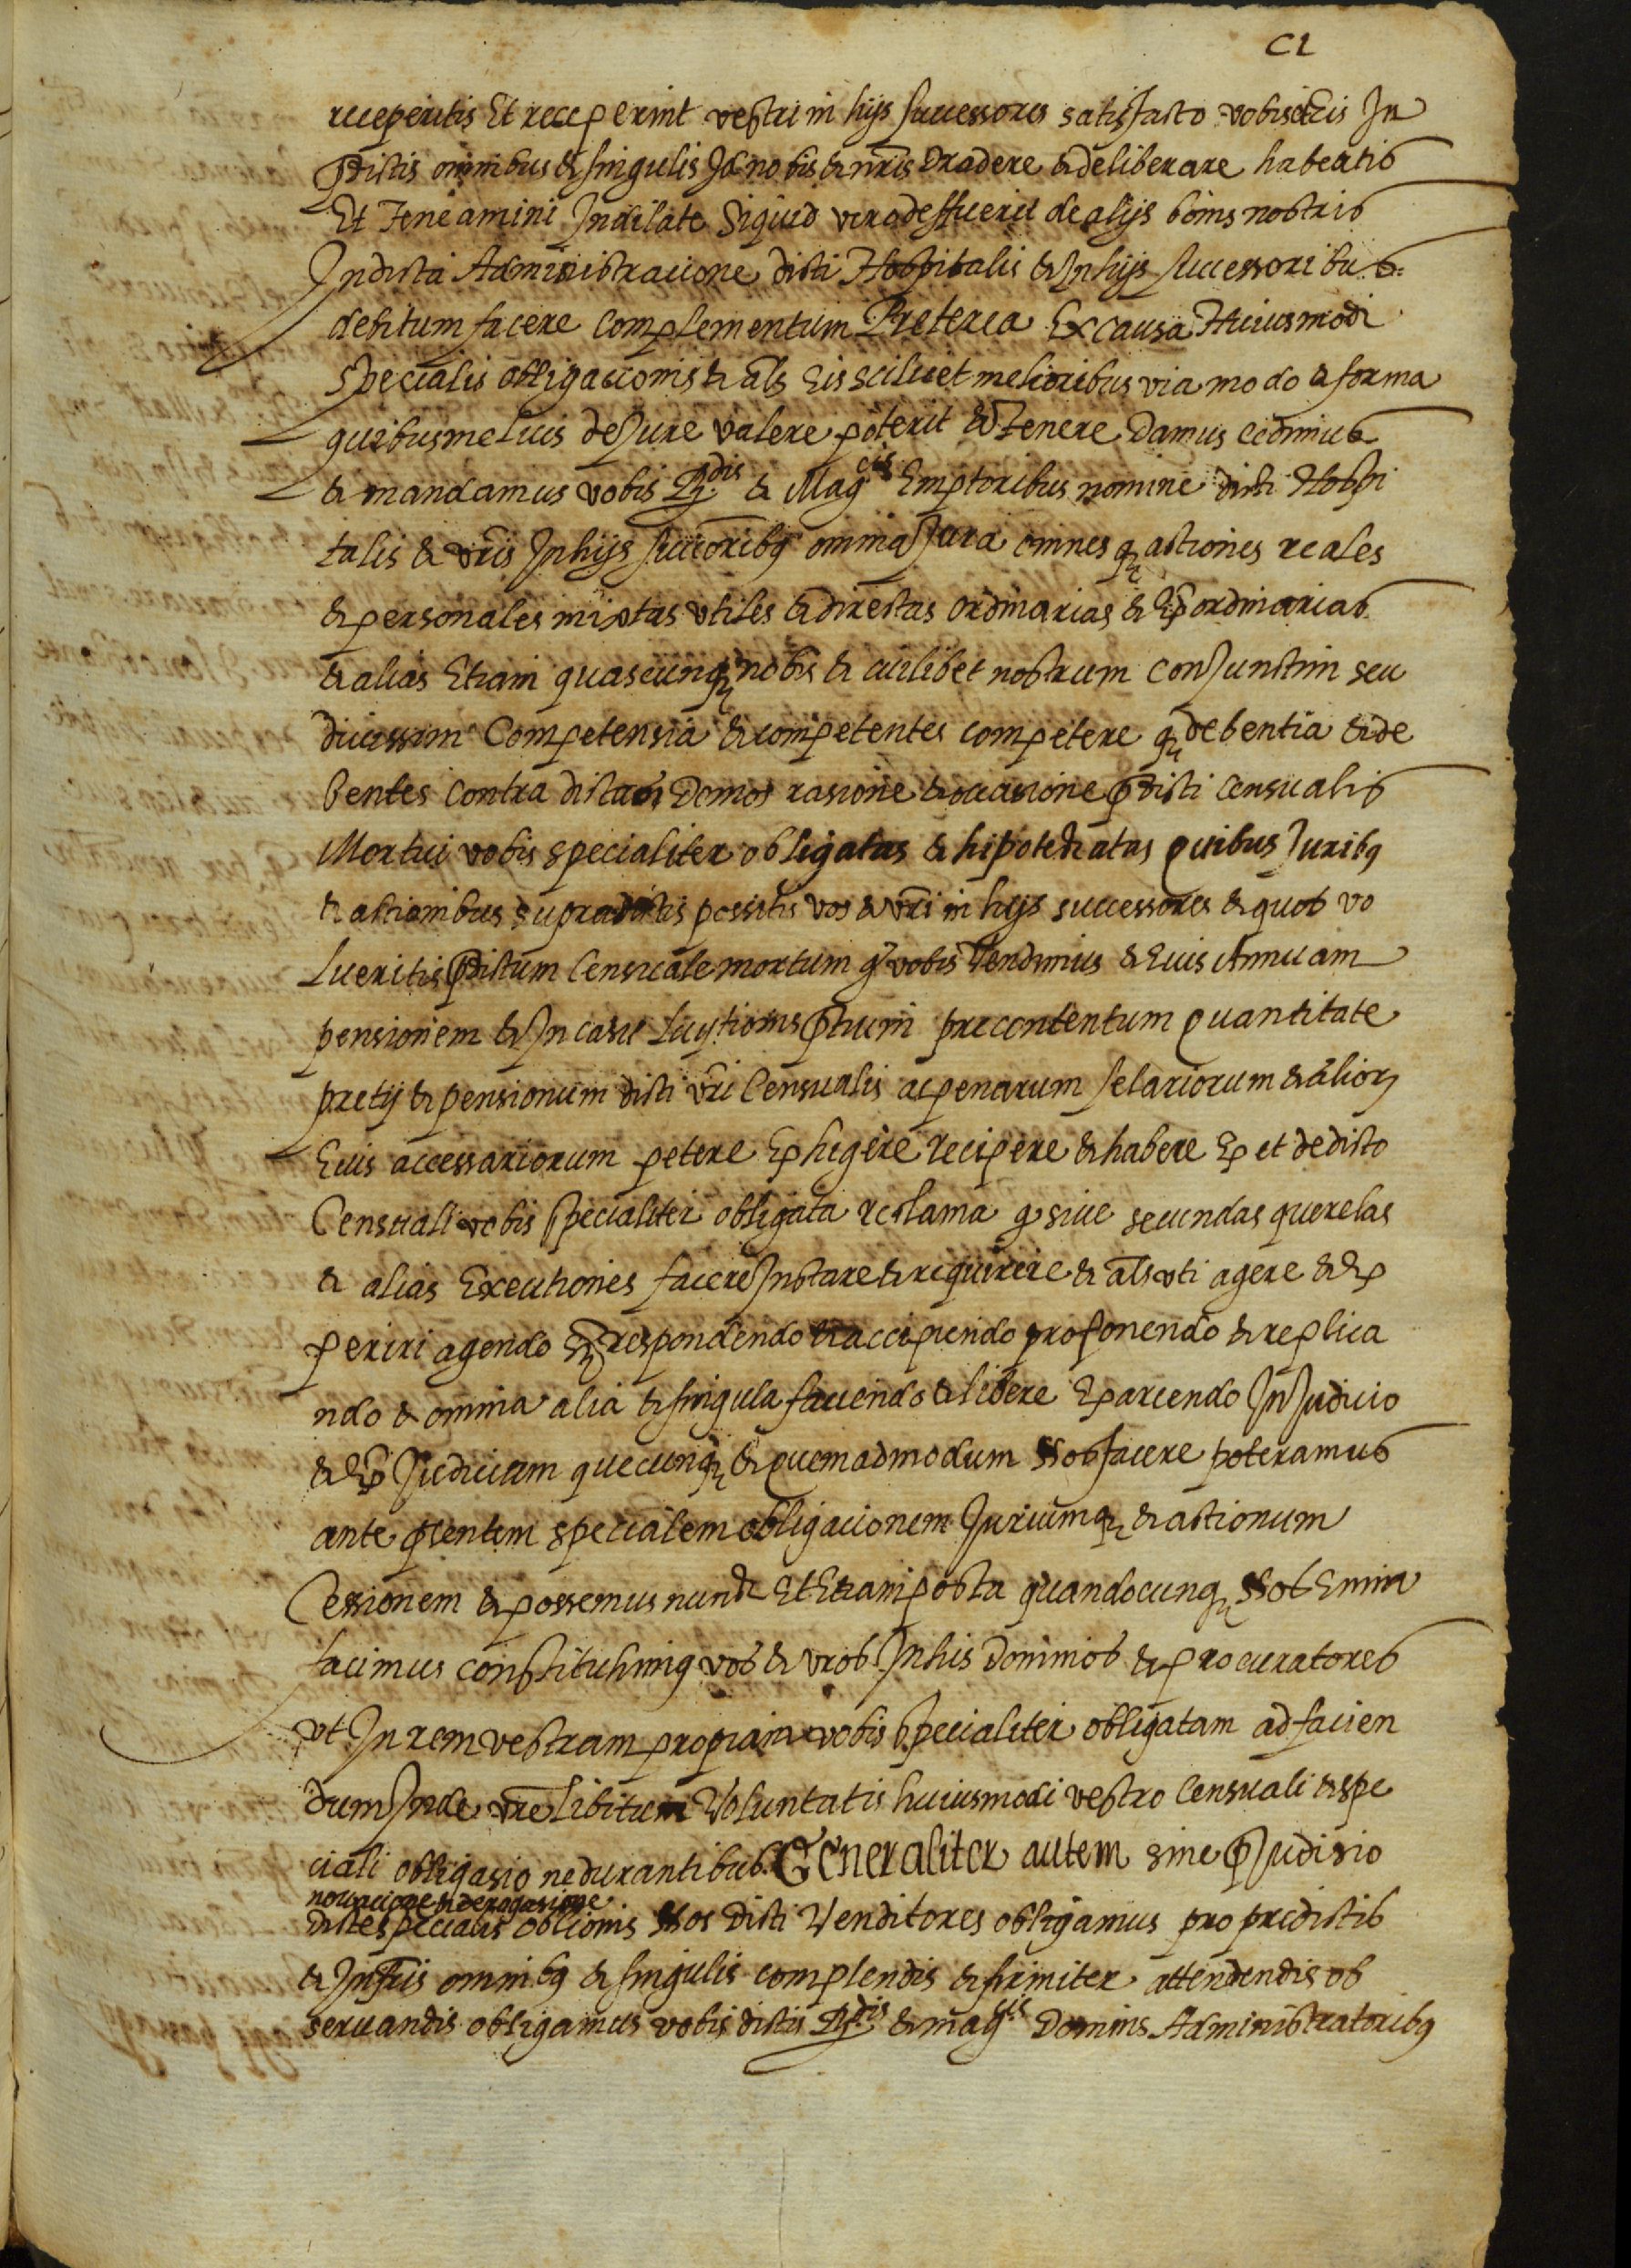 CL
receperitis Et receperint vestri in hijs successores satisfacto vobis et Eis In
p̄dictis omnibus & singulis Id nobis & nr̄is tradere & deliberare habeatis
Et Teneamini Indilate Siquid vero deffuerit de alijs bonis nostris
In dicta Administracione dicti Hospitalis & In hijs successoribus
debitum facere complementum Preterea Ex causa Huiusmodi
specialis obligacionis & als̄ Eis scilicet melioribus via modo & forma
quibus melius de Jure valere poterit & Tenere Damus cedimus
& mandamus vobis Rdis & Magcis Emptoribus nomine dicti Hospi
talis & vr̄is In hijs succoribꝫ omnia Jura omnes qꝫ actiones reales
& personales mixtas vtiles & directas ordinarias & Exordinarias
& alias Etiam quascunqꝫ nobis & cuilibet nostrum conjunctim seu
divissim Competensia & competentes competere qꝫ debentia & de
bentes contra dictas Domos rasione & occasione p̄dicti censualis
Mortui vobis specialiter obligatas & hipotecatas quibus Juribꝫ
& actionibus supradictis possitis vos & vr̄i in hijs successores & quos vo
lueritis p̄dictum Censuale mortuum qd̄ vobis Vendimus & Eius Annuam
pensionem & In casu Luytionis p̄tium precontentum quantitate
pretij & pensionum dicti vr̄i Censualis ac penarum selariorum & alior
Eius accessariorum petere Exhigere recipere & habere Ex et de dicto
Censuali vobis specialiter obligata reclama qꝫ siue secundas querelas
& alias Executiones facere Instare & requirere & als̄ vti agere & Ex
periri agendo respondendo & accipiendo proponendo & replica
ndo & omnia alia & singula faciendo & libere Exarcendo In Judicio
& Ex Judicium quecunqꝫ & quemadmodum Nos facere poteramus
ante p̄sentem specialem obligacionem Jurium qꝫ & actionum
Cessionem & possemus nunch Et Etiam posta quandocunqꝫ Nos Enim
facimus constituhimꝫ vos & vros In his Dominos & procuratores
vt In rem vestram propiam vobis specialiter obligatam ad facien
dum Inde vr̄e libitum Voluntatis huiusmodi vestro Censuali & spe
ciali obligasione durantibus. Generaliter autem sine p̄Judisio
novacione & derogasione
dicte specialis oblionis Nos dicti Venditores obligamus pro predictis
& Infr̄is omnibꝫ & singulis complendis & firmiter attendendis ob
servandis obligamus vobis dictis Rdis & magcis Dominis Administratoribꝫ